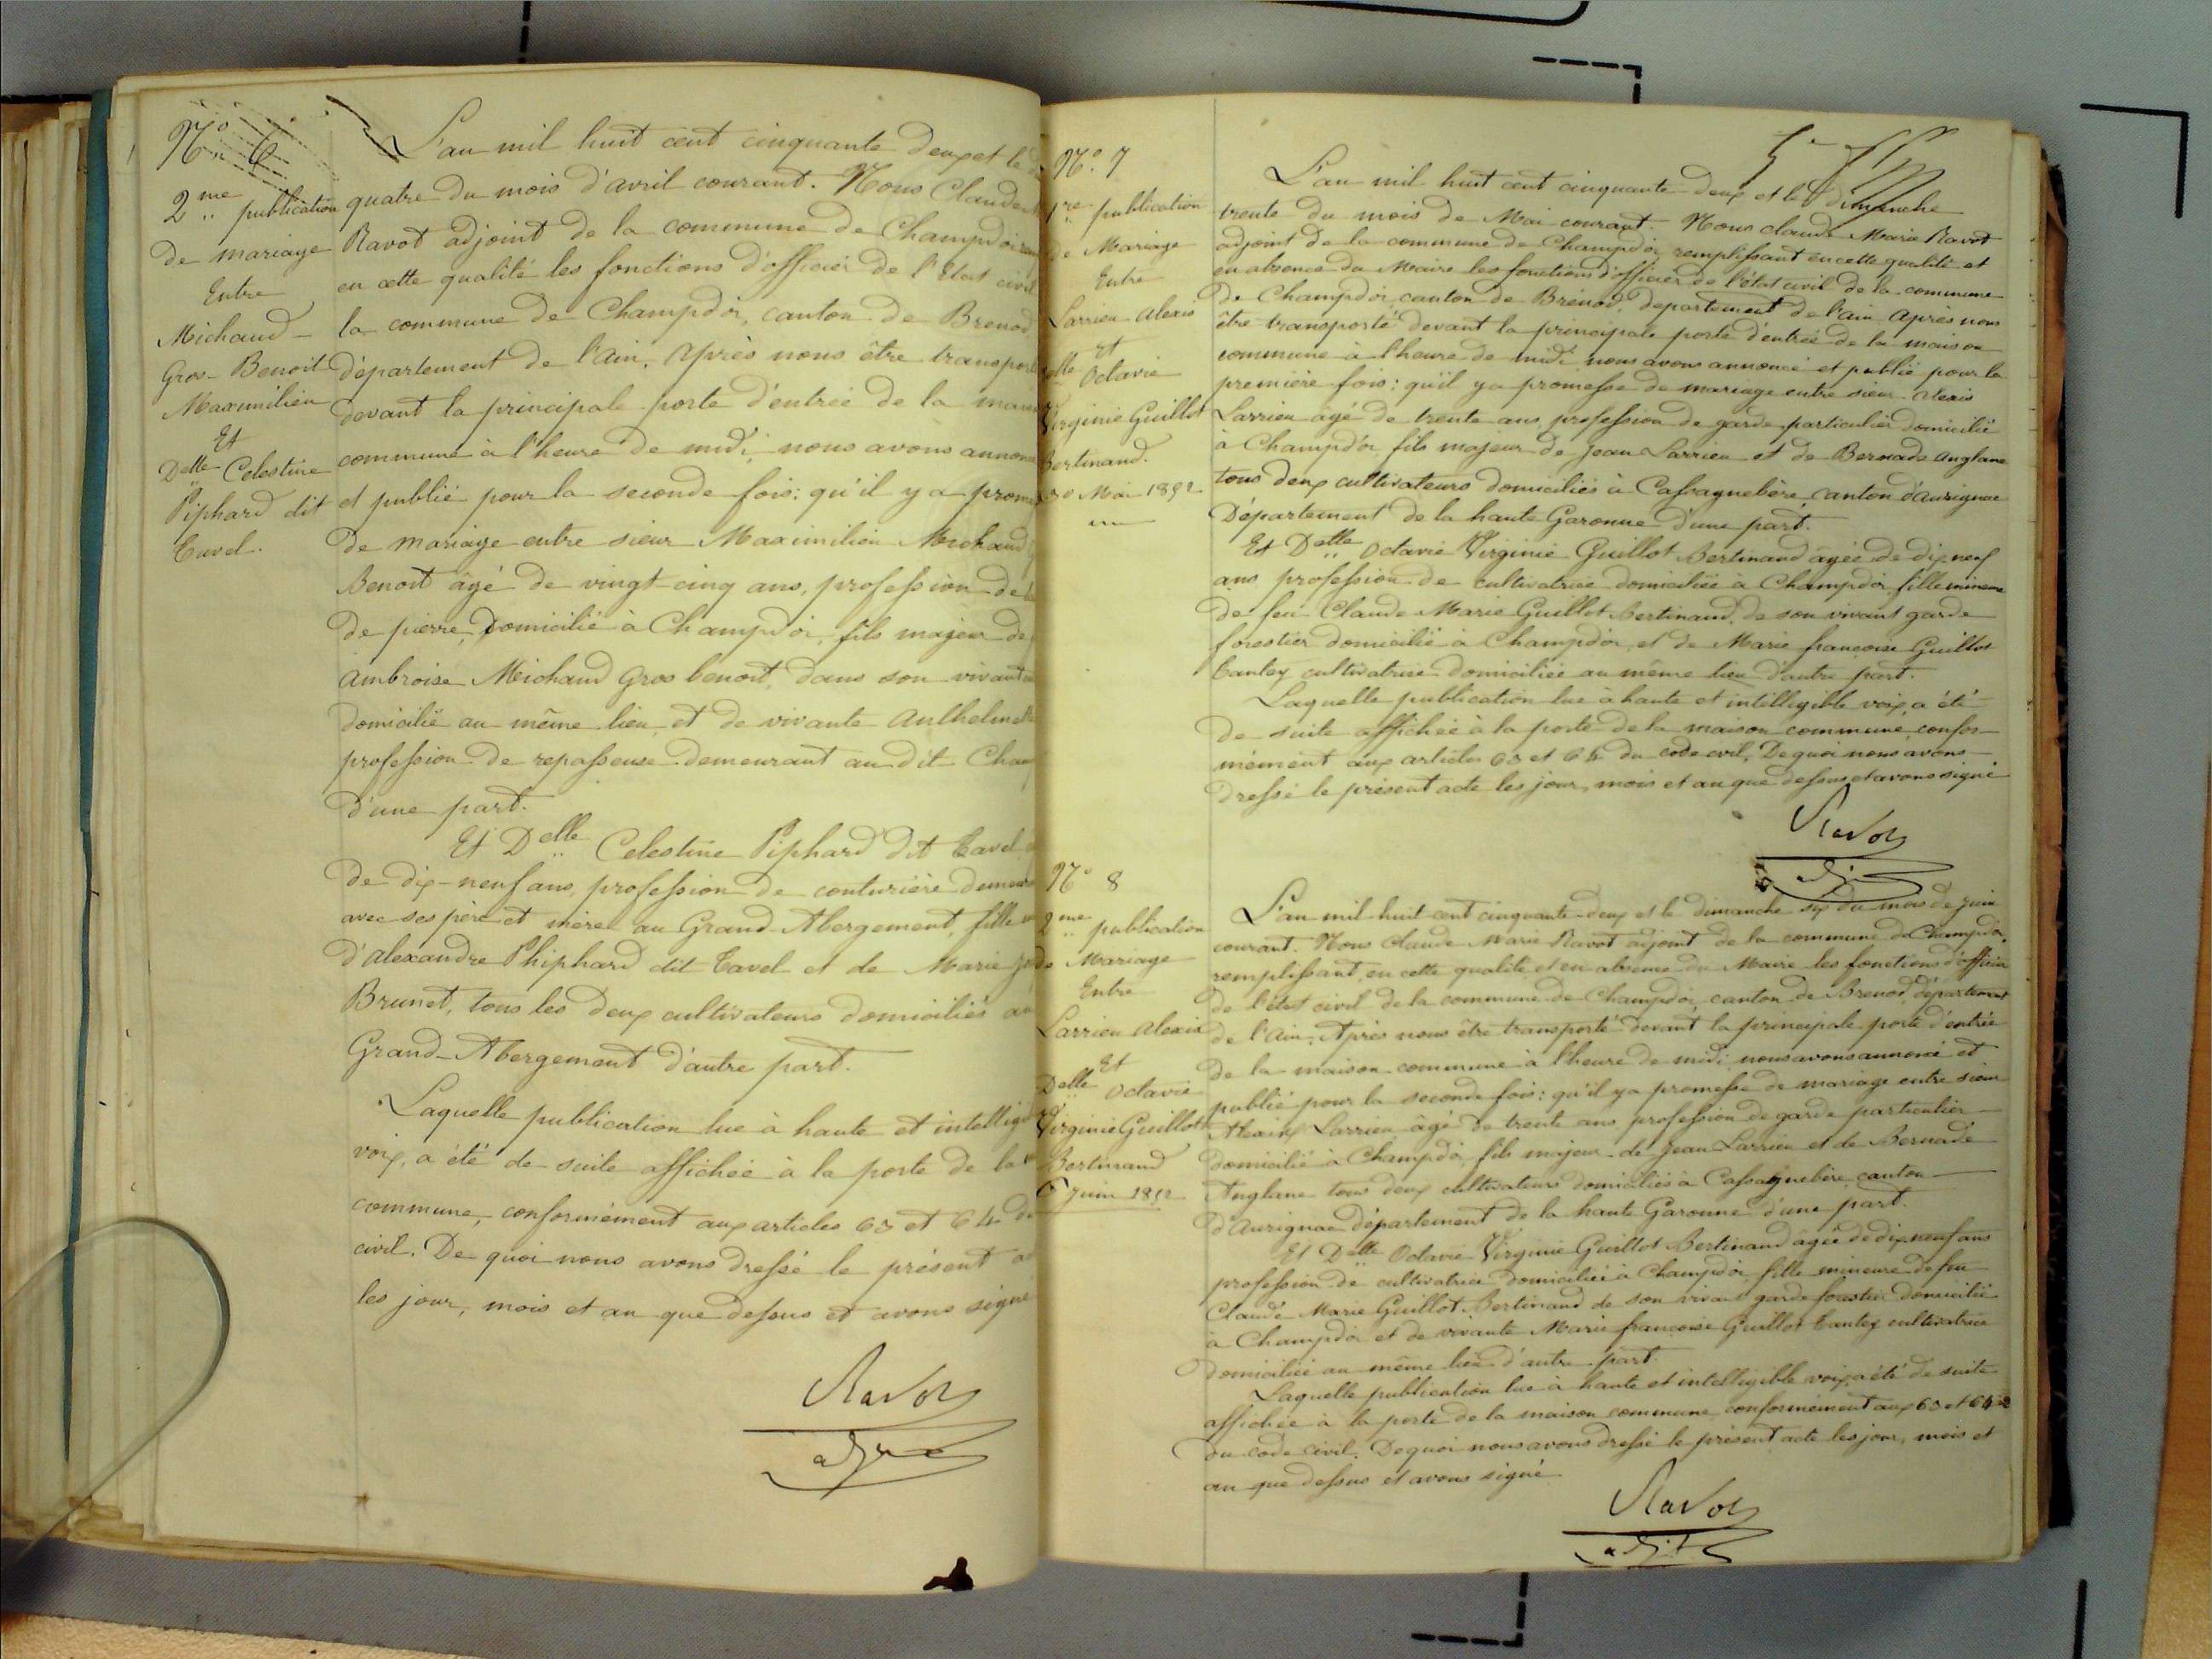 N.o 6
2.me publication
de mariage
Entre
Michaud-
Gros-Benoit
Maximilien
Et
Delle Celestine
Piphard dit
Tavel.
L'an mil huit cent cinquante deux et le
quatre du mois d'avril courant. Nous Claude
Ravot adjoint de la commune de Champdor
en cette qualité les fonctions d'officier de l'Etat civil
la commune de Champdor, canton de Brenod,
département de l'Ain. Après nous être transport
devant la principale porte d'entrée de la mais
commune à l'heure de midi, nous avons annon
et publié pour la seconde fois: qu'il y a prome
de mariage entre sieur Maximilien Michaud
Benoit âgé de vingt cinq ans, profession de
de pierre, domicilié à Champdor, fils majeur de
Ambroise Michaud Gros benoit, dans son vivant
domicilié au même lieu, et de vivante Anthelmette
profession de repasseuse demeurant au dit Cham
d'une part.
Et Delle Celestine Piphard dit Tavel
de dix-neuf ans, profession de couturière demeur
avec ses père et mère au Grand-Abergement, fille
d'Alexandre Phiphard dit Tavel et de Marie
Brunet, tous les deux cultivateurs domiciliés au
Grand-Abergement d'autre part.
Laquelle publication lue à haute et intelligi
voix, a été de suite affichée à la porte de la
commune, conformément aux articles 63 et 64 du
civil. De quoi nous avons dressé le présent ac
les jour, mois et an que dessus et avons signé
Ravot
adjt
N.o 7
1re publication
de Mariage
Entre
Larrieu Alexis
et
elle Octavie
Virginie Guillot
Bertinand.
30 Mai 1852
L'an mil huit cent cinquante deux et le dimanche
trente du mois de Mai courant. Nous Claude Marie Ravot
adjoint de la commune de Champdor, remplissant en cette qualité et
en absence du Maire les fonctions d'officier de l'état civil de la commune
de Champdor, canton de Brénod, departement de l'ain. Après nous
être transporté devant la principale porte d'entrée de la maison
commune à l'heure de midi nous avons annoncé et publié pour la
première fois: qu'il y a promesse de mariage entre sieur Alexis
Larrieu âgé de trente ans, profession de garde particulier domicilié
à Champdor, fils majeur de Jean Larrieu et de Bernade Anglane
tous deux cultivateurs domiciliés à Cassagnebère, canton d'Aurignac
Département de la haute Garonne d'une part.
Et Delle Octavie Virginie Guillot Bertinand âgée de dix neuf
ans profession de cultivatrice domiciliée à Champdor, fille mineure
de feu Claude Marie Guillot Bertinand, de son vivant garde
forestier domicilié à Champdor, et de Marie francoise Guillot
Tantey cultivatrice domiciliée au même lieu d'autre part.
Laquelle publication lue à haute et intelligible voix, a été
de suite affichée à la porte de la maison commune, confor-
mément aux articles 63 et 64 du code civil. De quoi nous avons
dressé le présent acte les jour, mois et an que dessus et avons signé
Ravot
adjt
N.o 8
2me publication
de Mariage
Entre
Larrieu Alexis
Et
Delle Octavie
Virginie Guillot
Bertinand
6 Juin 1852
L'an mil huit cent cinquante deux et le dimanche six du mois de Juin
courant. Nous Claude Marie Ravot adjoint de la commune de Champdor,
remplissant, en cette qualité et en absence du Maire les fonctions d'officier
de l'état civil de la commune de Champdor, canton de Brenod, département
de l'Ain. Après nous être transporté devant la principale porte d'entrée
de la maison commune à l'heure de midi, nous avons annoncé et
publié pour la seconde fois: qu'il y a promesse de mariage entre sieur
Alexis Larrieu âgé de trente ans profession de garde particulier
domicilié à Champdor, fils majeur de Jean Larrieu et de Bernade
Anglane tous deux cultivateurs domiciliés à Cassagnebère, canton
d'Aurignac département de la haute Garonne d'une part.
Et Delle Octavie Virginie Guillot Bertinand âgée de dix neuf ans
profession de cultivatrice domiciliée à Champdor, fille mineure de feu
Claude Marie Guillot Bertinand de son vivant garde forestier domicilié
à Champdor et de vivante Marie francoise Guillot Tantey cultivatrice
domiciliée au même lieu d'autre part.
Laquelle publication lue à haute et intelligible voix, a été de suite
affichée à la porte de la maison commune, conformément aux 63 et 64
du code civil. De quoi nous avons dressé le présent acte les jour, mois et
an que dessus et avons signé
Ravot
adjt